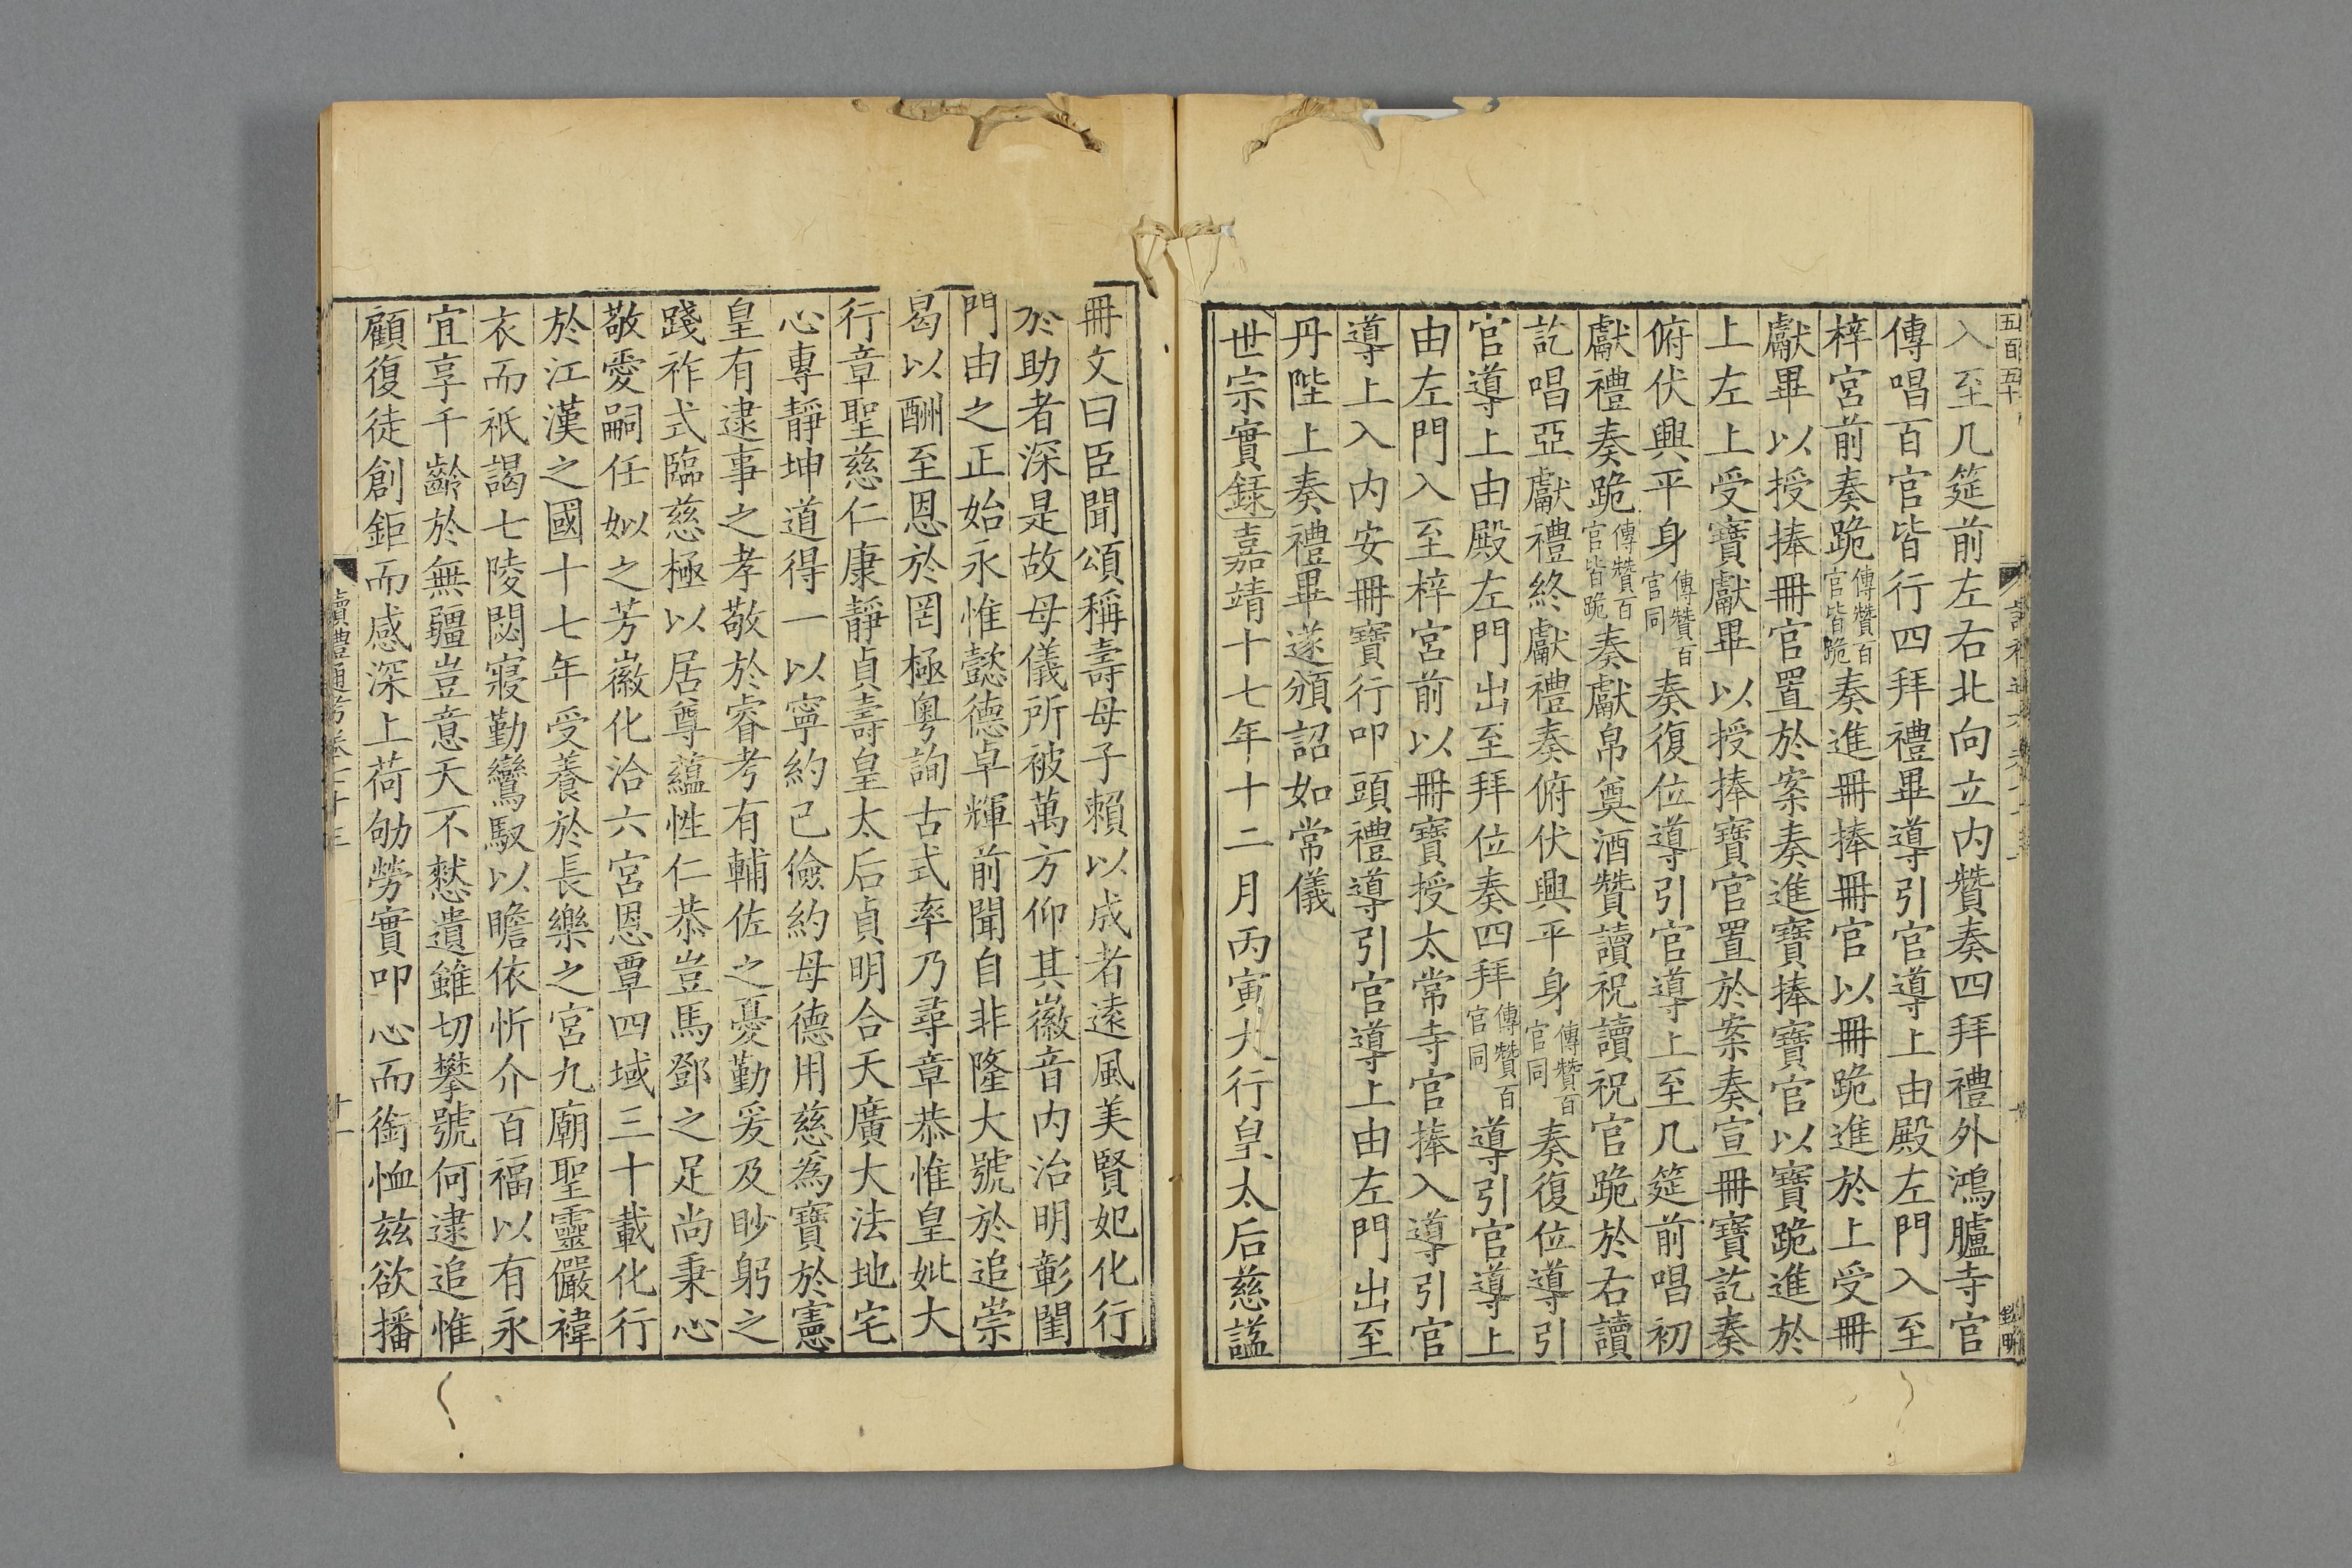 五百五十
入至几筵前左右北向立內贊奏四拜禮外鴻臚寺官
傳唱百官皆行四拜禮畢導引官導上由殿左門入至
梓宮前奏跪傳贊百官皆跪奏進冊捧冊官以冊跪進於上受冊
獻畢以授捧冊官置於案奏進寶捧寶官以寶跪進於
上左上受寶獻畢以授捧寶官置於案奏宣冊寶訖奏
俯伏興平身傳贊百官同奏復位導引官導上至几筵前唱初
獻禮奏跪傳贊百官皆跪奏獻帛奠酒贊讀祝讀祝官跪於右讀
訖唱亞獻禮終獻禮奏俯伏興平身傳贊百官同奏復位導引
官導上由殿左門出至拜位奏四拜傳贊百官同導引官導上
由左門入至梓宮前以冊寶授太常寺官捧入導引官
導上入內安冊寶行叩頭禮導引官導上由左門出至
丹陛上奏禮畢遂頒詔如常儀
世宗實錄嘉靖十七年十二月丙寅大行皇太后慈諡
冊文曰臣聞頌稱壽母子賴以成者遠風美賢妃化行
於助者深是故母儀所被萬方仰其徽音內治明彰閨
門由之正始永惟懿德卓輝前聞自非隆大號於追崇
曷以酬至恩於罔極粵詢古式率乃尋章恭惟皇妣大
行章聖慈仁康靜貞壽皇太后貞明合天廣大法地宅
心專靜坤道得一以寧約己儉約母德用慈為寶於憲
皇有逮事之孝敬於睿考有輔佐之憂勤爰及眇躬之
踐祚式臨慈極以居尊蘊性仁恭豈馬鄧之足尚秉心
敬愛嗣任姒之芳徽化洽六宮恩覃四域三十載化行
於江漢之國十七年受養於長樂之宮九廟聖靈儼褘
衣而祇謁七陵閟寢勤鸞馭以瞻依忻介百福以有永
宜享千齡於無疆豈意天不憖遺雖切攀號何逮追惟
顧復徒創鉅而感深上荷劬勞實叩心而銜恤茲欲播
讀禮通考卷二十三
十一